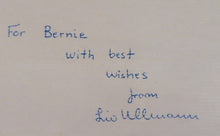 For Bernie
with best
wishes
from
Liv Ullmann